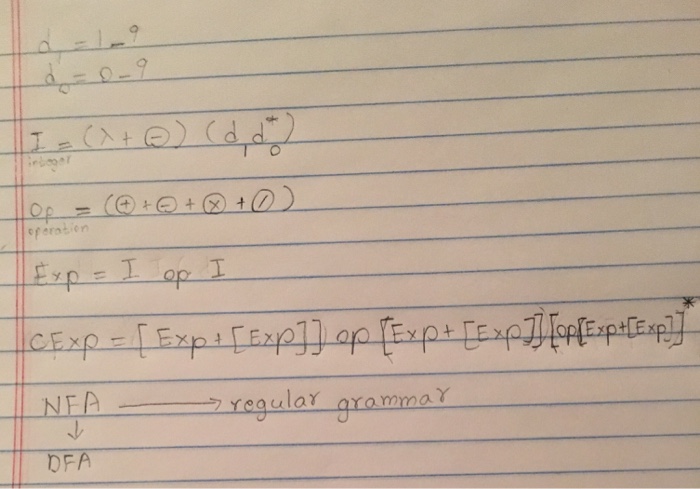 d₁ = 1-9
d₀ = 0-9
I = (λ + ⊖) (d₁ d₀*)
integer
Op = (⊕ + ⊖ + ⊗ + ⊘)
operation
Exp = I op I
CExp = [Exp + [Exp]] op [Exp + [Exp]] [op[Exp+[Exp]]*
NFA ⟶ regular grammar
↓
DFA